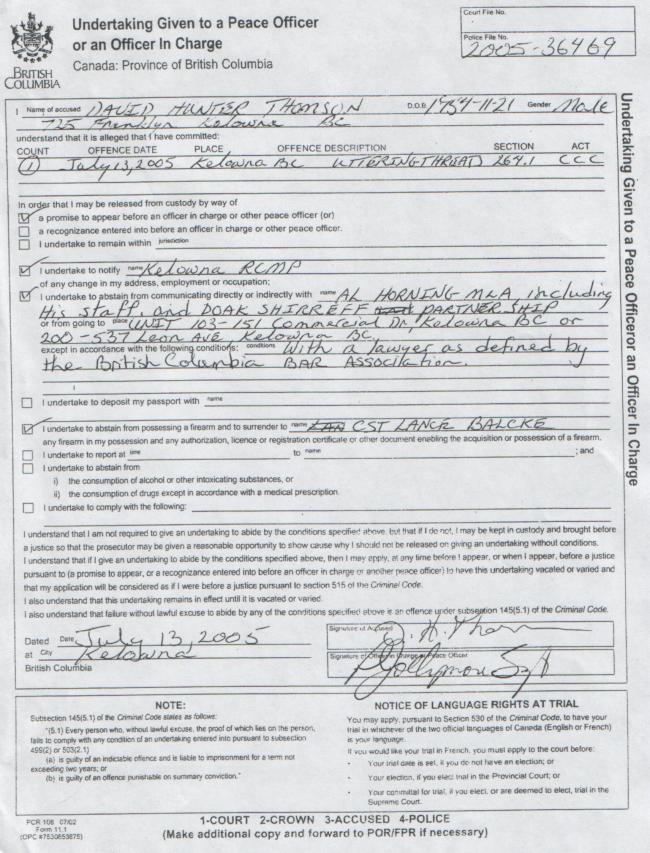 Undertaking Given to a Peace Officer
or an Officer In Charge
Canada: Province of British Columbia
BRITISH
COLUMBIA
Court File No.
Police File No.
2005-36469
I Name of accused DAVID HUNTER THOMSON D.O.B 1954-11-21 Gender Male
725 Franklyn Kelowna BC
understand that it is alleged that I have committed:
COUNT OFFENCE DATE PLACE OFFENCE DESCRIPTION SECTION ACT
1 July 13, 2005 Kelowna BC UTTERING THREAT 264.1 CCC
In order that I may be released from custody by way of
a promise to appear before an officer in charge or other peace officer (or)
a recognizance entered into before an officer in charge or other peace officer.
I undertake to remain within jurisdiction
I undertake to notify name Kelowna RCMP
of any change in my address, employment or occupation;
I undertake to abstain from communicating directly or indirectly with name AL HORNING MLA, including
His staff, and DOAK SHIRREFF PARTNERSHIP
or from going to place UNIT 103-151 Commercial Dr, Kelowna BC or
200-537 Leon AVE Kelowna BC.
except in accordance with the following conditions: conditions With a lawyer as defined by
the British Columbia BAR Association.
I undertake to deposit my passport with name
I undertake to abstain from possessing a firearm and to surrender to name CST LANCE BALCKE
any firearm in my possession and any authorization, licence or registration certificate or other document enebling the acquisition or possession of a firearm.
I undertake to report at time to name ; and
I undertake to abstain from
i) the consumption of alcohol or other intoxicating substances, or
ii) the consumption of drugs except in accordance with a medical prescription.
I undertake to comply with the following:
I understand that I am not required to give an undertaking to abide by the conditions specified above, but that if I do not, I may be kept in custody and brought before
a justice so that the prosecutor may be given a reasonable opportunity to show cause why I should not be released on giving an undertaking without conditions.
I understand that if I give an undertaking to abide by the conditions specified above, then I may apply, at any time before I appear, or when I appear, before a justice
pursuant to (a promise to appear, or a recognizance entered into before an officer in charge or another peace officer) to have this undertaking vacated or varied and
that my application will be considered as if I were before a justice pursuant to section 515 of the Criminal Code.
I also understand that this undertaking remains in effect until it is vacated or varied.
I also understand that failure without lawful excuse to abide by any of the conditions specified above is an offence under subsection 145(5.1) of the Criminal Code.
Dated Date July 13, 2005
at City Kelowna
British Columbia
Signature of Accused
Signature of Officer in Charge or Peace Officer
Undertaking Given to a Peace Officer or an Officer In Charge
NOTE:
Subsection 145(5.1) of the Criminal Code states as follows:
"(5.1) Every person who, without lawful excuse, the proof of which lies on the person,
fails to comply with any condition of an undertaking entered into pursuant to subsection
499(2) or 503(2.1)
(a) is guilty of an indictable offence and is liable to imprisonment for a term not
exceeding two years; or
(b) is guilty of an offence punishable on summary conviction."
NOTICE OF LANGUAGE RIGHTS AT TRIAL
You may apply, pursuant to Section 530 of the Criminal Code, to have your
trial in whichever of the two official languages of Canada (English or French)
is your language.
If you would like your trial in French, you must apply to the court before:
· Your trial date is set, if you do not have an election; or
· Your election, if you elect trial in the Provincial Court; or
· Your committal for trial, if you elect, or are deemed to elect, trial in the
Supreme Court.
PCR 108 07/02
Form 11.1
(OPC #7530853875)
1-COURT 2-CROWN 3-ACCUSED 4-POLICE
(Make additional copy and forward to POR/FPR if necessary)